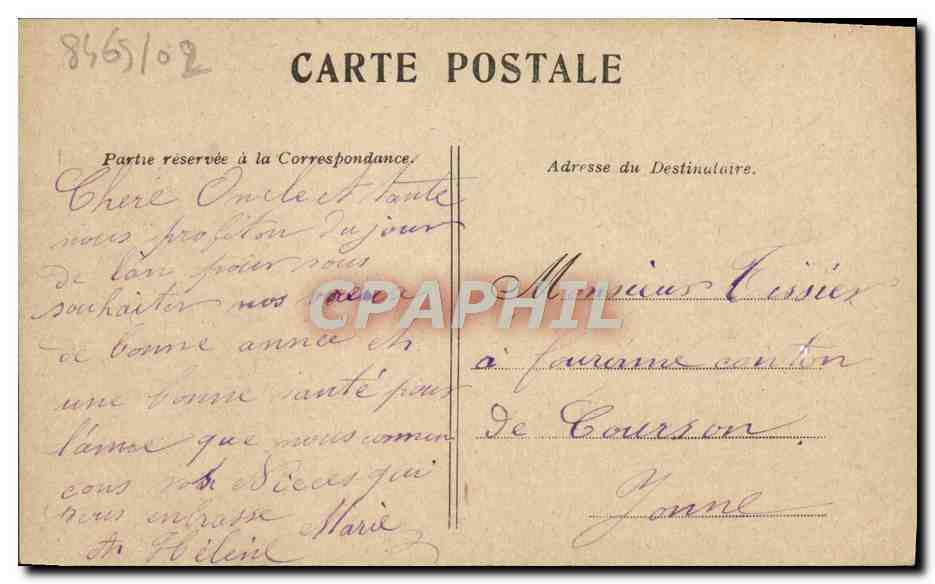 8465/02
CARTE POSTALE
Partie réservée à la Correspondance.
Adresse du Destinataire.
Chere Oncle et tante
nous profiton du jour
de l'an pour vous
souhaiter nos voeux
de bonne année et
une bonne santé pour
l'annee que nous commen
cons vos Nieces qui
vous enbrasse Marie
et Hélène
Monsieur Tissier
à canton
de Courson
Yonne
CPAPHIL